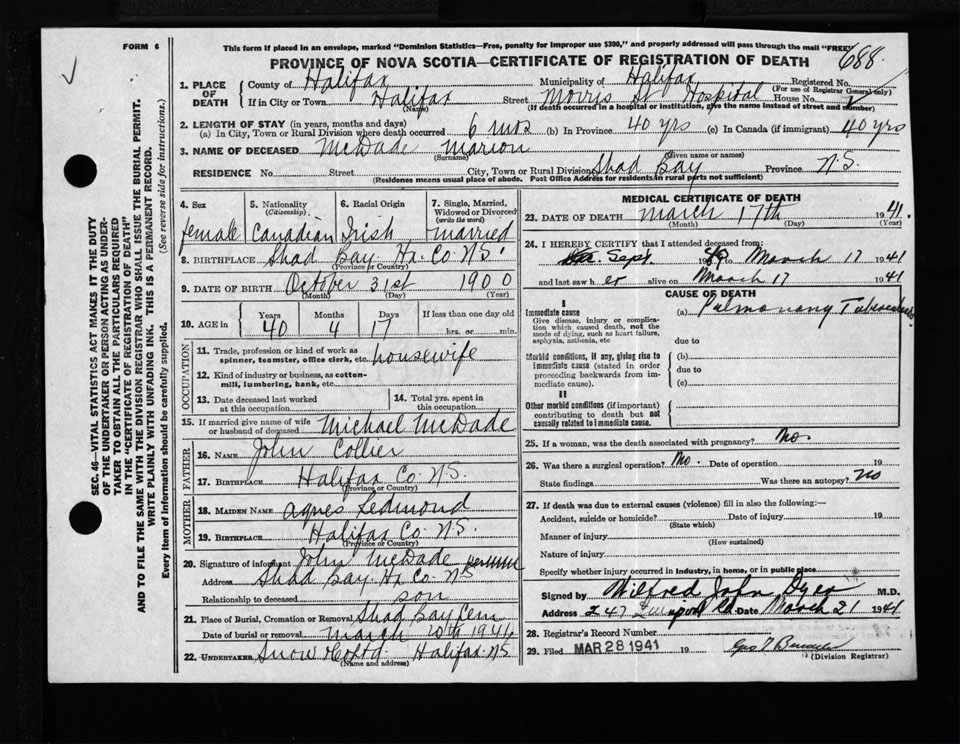 FORM 6
This form if placed in an envelope, marked "Dominion Statistics—Free, penalty for improper use $300," and properly addressed will pass through the mail "FREE"
PROVINCE OF NOVA SCOTIA—CERTIFICATE OF REGISTRATION OF DEATH
688
1. PLACE OF DEATH County of Halifax Municipality of Halifax Registered No.
(For use of Registrar General only)
If in City or Town Halifax Street Morris St Hospital House No.
(Name) (If death occurred in a hospital or institution, give the name instead of street and number)
2. LENGTH OF STAY (in years, months and days)
(a) In City, Town or Rural Division where death occurred 6 mts (b) In Province 40 yrs (c) In Canada (if immigrant) 40 yrs
3. NAME OF DECEASED McDade Marion
(Surname) (Given name or names)
RESIDENCE No. Street City, Town or Rural Division Shad Bay Province N.S.
(Residence means usual place of abode. Post Office Address for residents in rural parts not sufficient)
4. Sex 5. Nationality (Citizenship) 6. Racial Origin 7. Single, Married, Widowed or Divorced (write the word)
female Canadian Irish married
8. BIRTHPLACE Shad Bay Hx. Co. N.S.
(Province or Country)
9. DATE OF BIRTH October 31st 1900
(Month) (Day) (Year)
10. AGE in Years Months Days If less than one day old
40 4 17 hrs. or min.
OCCUPATION
11. Trade, profession or kind of work as spinner, teamster, office clerk, etc. housewife
12. Kind of industry or business, as cotton-mill, lumbering, bank, etc.
13. Date deceased last worked at this occupation 14. Total yrs. spent in this occupation
15. If married give name of wife or husband of deceased Michael McDade
FATHER
16. NAME John Collier
17. BIRTHPLACE Halifax Co. N.S.
(Province or Country)
MOTHER
18. MAIDEN NAME Agnes Redmond
19. BIRTHPLACE Halifax Co. N.S.
(Province or Country)
20. Signature of informant John McDade
Address Shad Bay. Hx. Co. N.S.
Relationship to deceased son
21. Place of Burial, Cremation or Removal Shad Bay Cem
Date of burial or removal March 1941
22. UNDERTAKER Snow & Co Ltd Halifax N.S.
(Name and address)
MEDICAL CERTIFICATE OF DEATH
23. DATE OF DEATH March 17th 1941.
(Month) (Day) (Year)
24. I HEREBY CERTIFY that I attended deceased from:
Sept. to March 17 1941
and last saw her alive on March 17 1941
CAUSE OF DEATH
I
Immediate cause
Give disease, injury or complication which caused death, not the mode of dying, such as heart failure, asphyxia, asthenia, etc
(a) Pulmonary Tuberculosis
due to
Morbid conditions, if any, giving rise to immediate cause (stated in order proceeding backwards from immediate cause).
(b)
due to
(c)
II
Other morbid conditions (if important) contributing to death but not causally related to immediate cause.
25. If a woman, was the death associated with pregnancy? No.
26. Was there a surgical operation? No. Date of operation 19
State findings Was there an autopsy? No
27. If death was due to external causes (violence) fill in also the following:—
Accident, suicide or homicide? Date of injury 19
(State which)
Manner of injury
(How sustained)
Nature of injury
Specify whether injury occurred in industry, in home, or in public place
Signed by Wilfred John Dyer M.D.
Address 247 Date March 21 1941
28. Registrar's Record Number
29. Filed MAR 28 1941 19
(Division Registrar)
SEC. 46—VITAL STATISTICS ACT MAKES IT THE DUTY
OF THE UNDERTAKER OR PERSON ACTING AS UNDER-
TAKER TO OBTAIN ALL THE PARTICULARS REQUIRED
IN THE "CERTIFICATE OF REGISTRATION OF DEATH"
AND TO FILE THE SAME WITH THE DIVISION REGISTRAR WHO SHALL ISSUE THE BURIAL PERMIT.
WRITE PLAINLY WITH UNFADING INK. THIS IS A PERMANENT RECORD.
Every item of information should be carefully supplied. (See reverse side for instructions.)